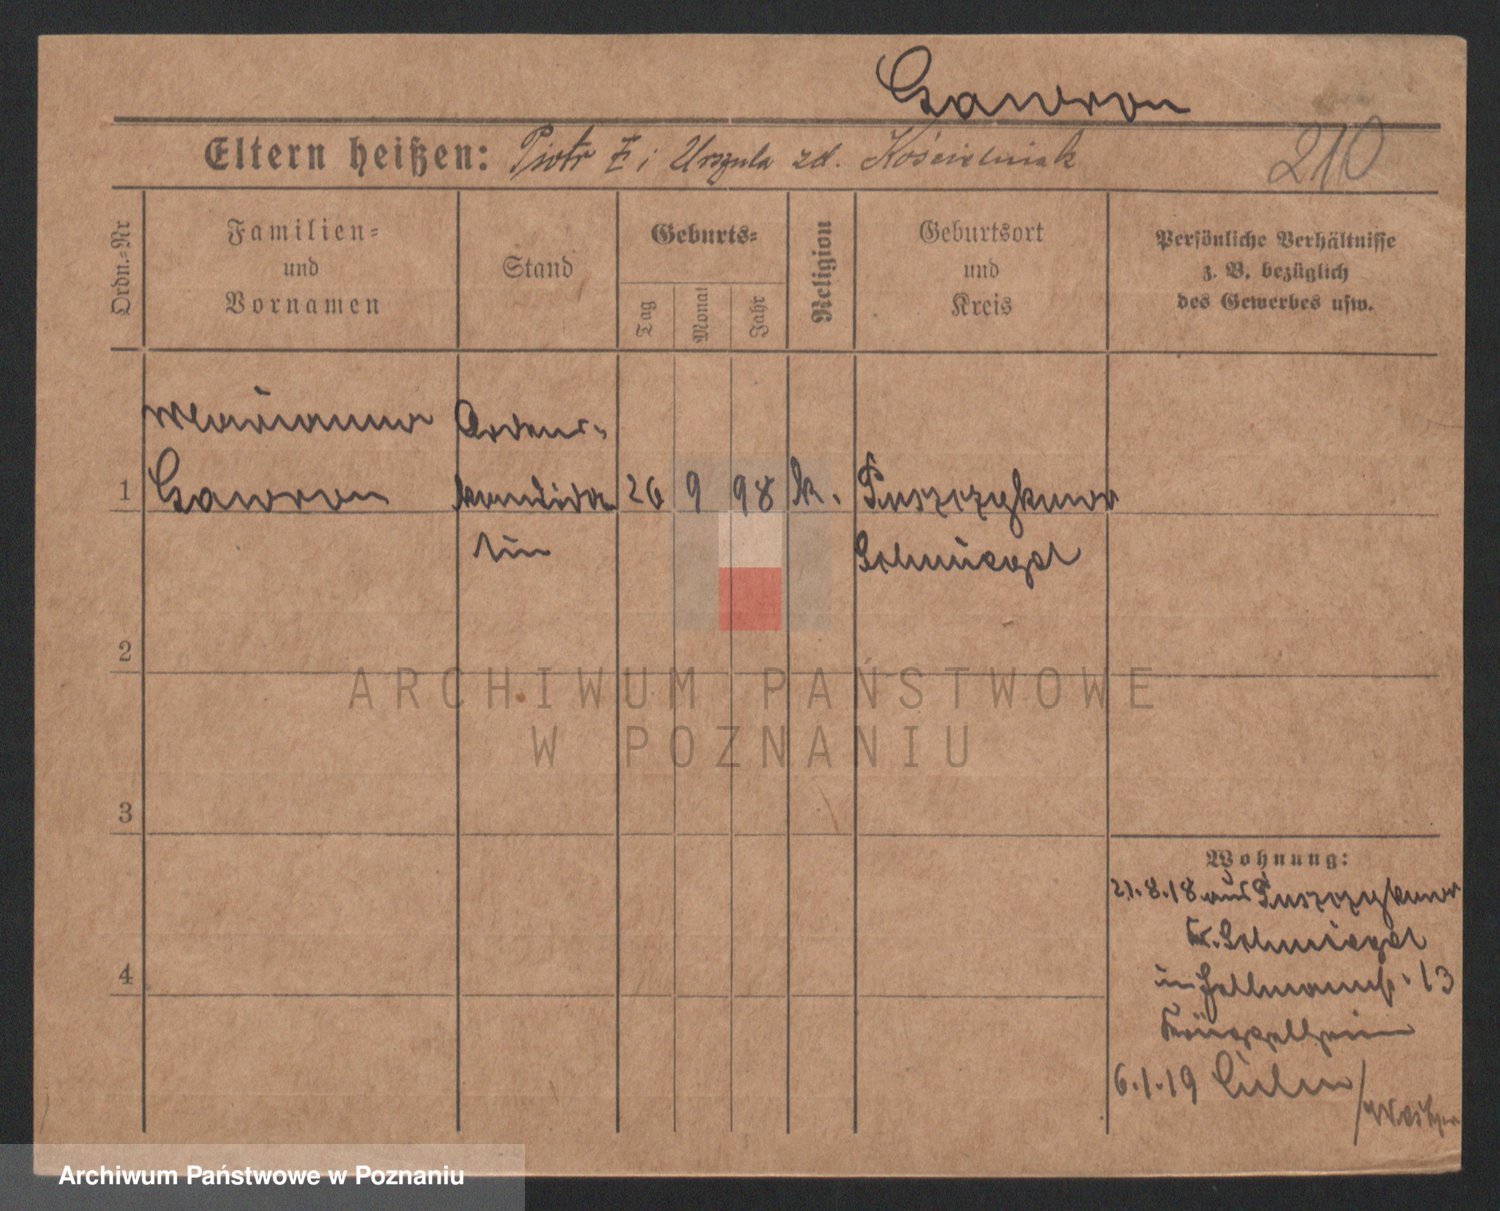 Gawron
Eltern heißen: Piotr i Urszula zd. Kościelniak
210
Ordn.-Nr
Familien- und Vornamen
Stand
Geburts-
Tag
Monat
Jahr
Religion
Geburtsort und Kreis
Persönliche Verhältnisse
z. B. bezüglich
des Gewerbes usw.
Marianna
Gawron
Ordens-
kandida
tin
1
26
9
98
k.
Puszczykowo
Schmiegel
2
3
4
Wohnung:
21.8.18 aus Puszczykowo
Kr. Schmiegel
in 13
6.1.19
ARCHIWUM PAŃSTWOWE
W POZNANIU
Archiwum Państwowe w Poznaniu